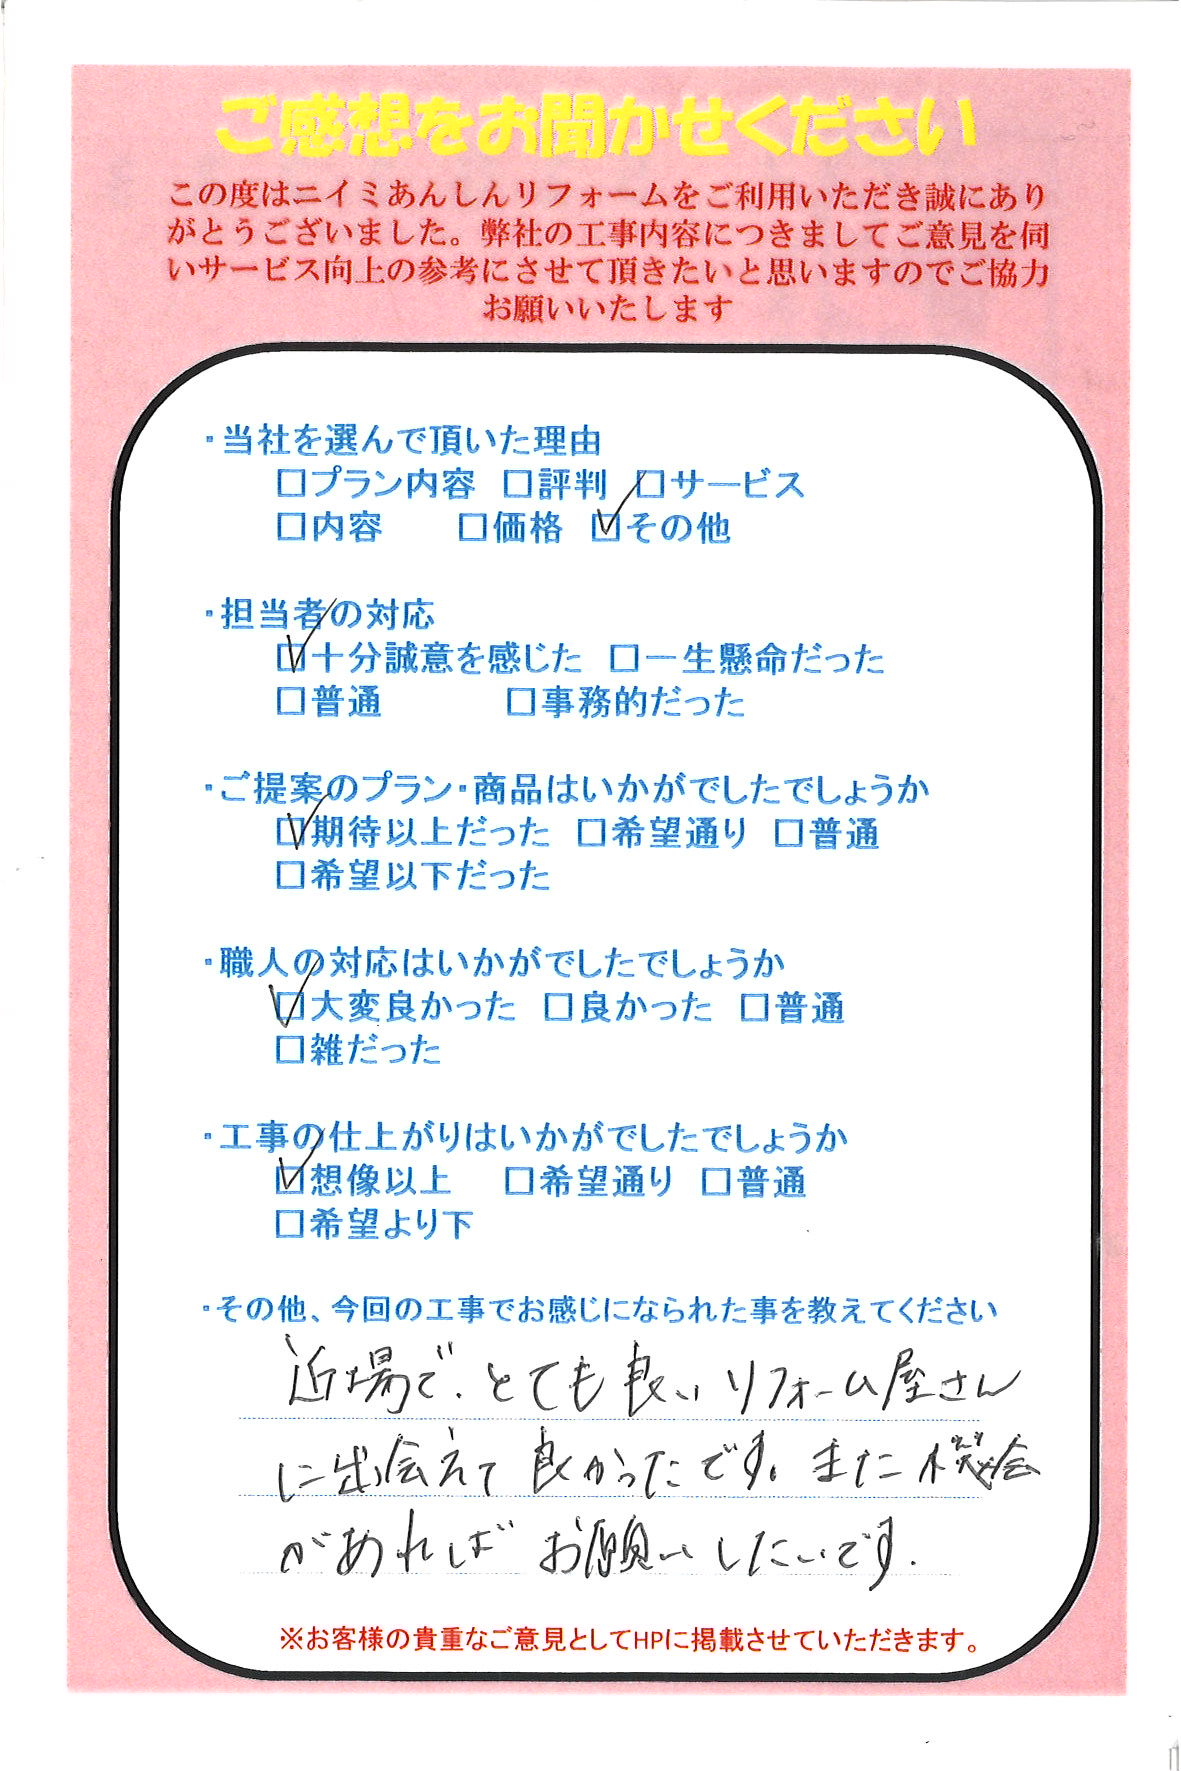 ご感想をお聞かせください
この度はニイミあんしんリフォームをご利用いただき誠にあり
がとうございました。弊社の工事内容につきましてご意見を伺
いサービス向上の参考にさせて頂きたいと思いますのでご協力
お願いいたします
・当社を選んで頂いた理由
□プラン内容 □評判 □サービス
□内容 □価格 ☑その他
・担当者の対応
☑十分誠意を感じた □一生懸命だった
□普通 □事務的だった
・ご提案のプラン・商品はいかがでしたでしょうか
☑期待以上だった □希望通り □普通
□希望以下だった
・職人の対応はいかがでしたでしょうか
☑大変良かった □良かった □普通
□雑だった
・工事の仕上がりはいかがでしたでしょうか
☑想像以上 □希望通り □普通
□希望より下
・その他、今回の工事でお感じになられた事を教えてください
近場で、とても良いリフォーム屋さん
に出会えて良かったです。また機会
があればお願いしたいです.
※お客様の貴重なご意見としてHPに掲載させていただきます。